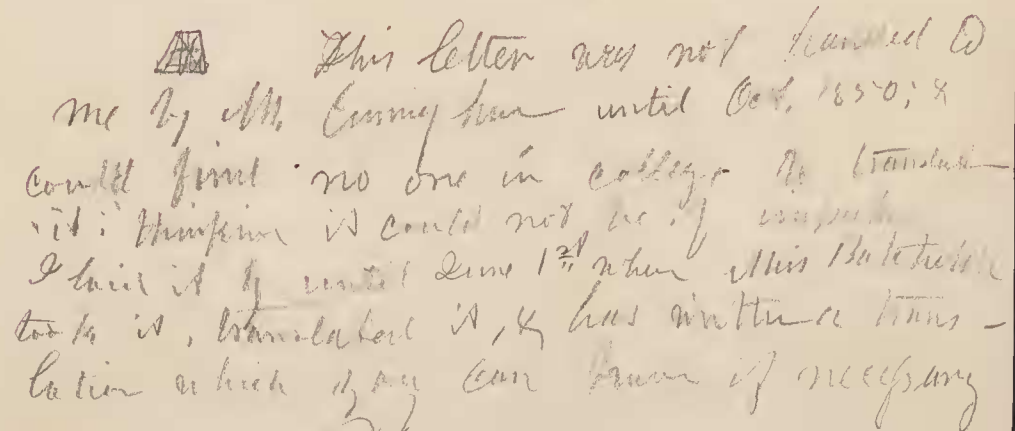 This letter was not handed to
me by Mr. Cunningham until Oct. 1850; &
could find no one in college to translate
it: thinking it could not be of
I laid it by until June 1st when Miss
took it, translated it, & has written a trans-
lation which you can have if necessary